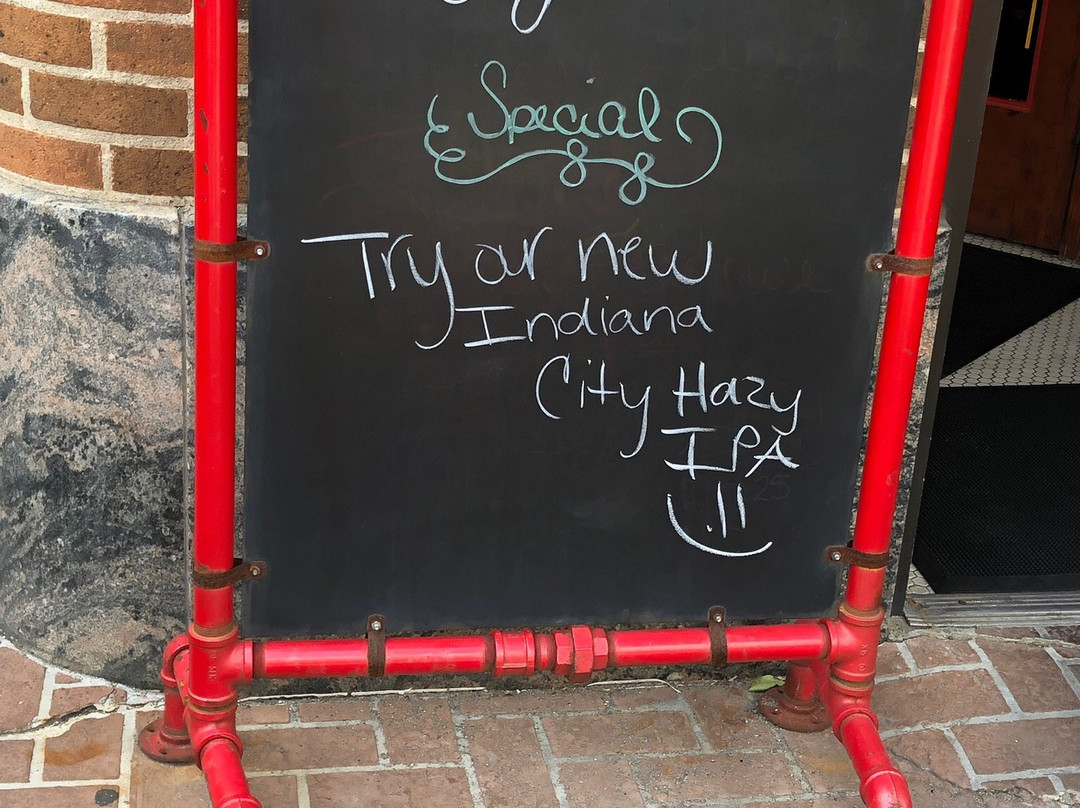 Special
Try our new
Indiana
City Hazy
IPA